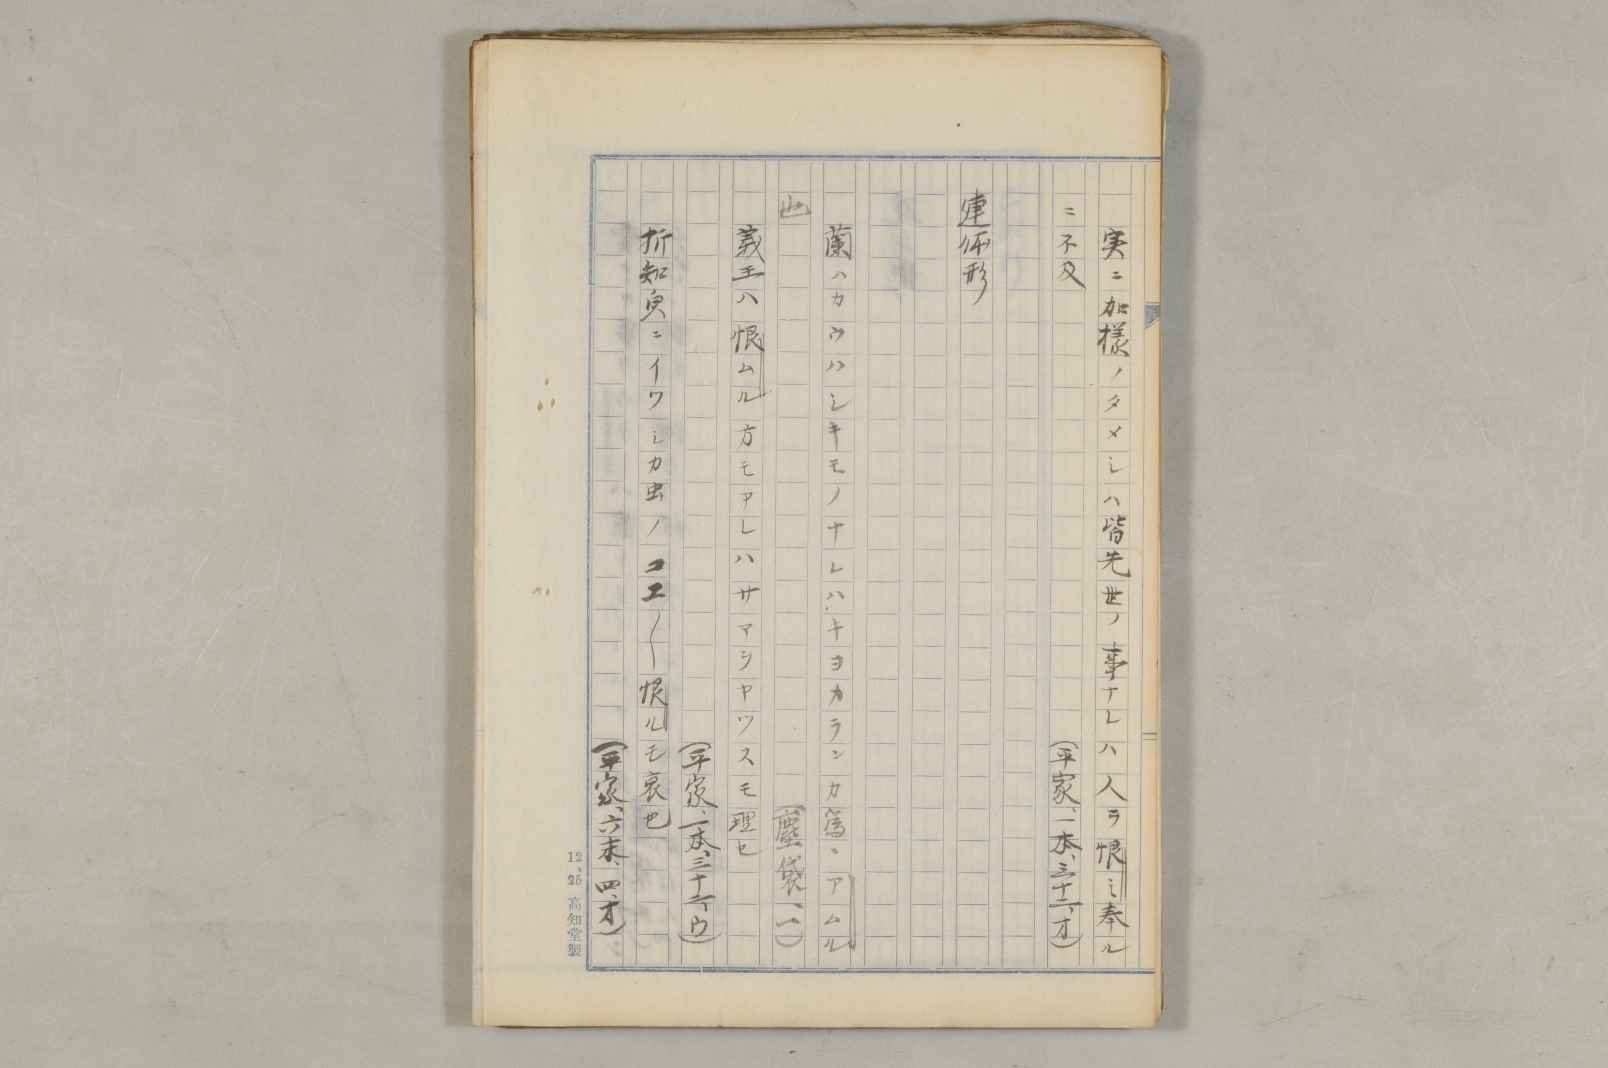 実ニ加樣ノタメシハ皆先世ノ事ナレハ人ヲ恨ミ奉ル
ニ不及
(平家、一本、三十二、オ)
連体形
蘭ハカウハシキモノナレハキヨカランカ為ニアムル
也
(塵袋、一)
義王ハ恨ムル方モアレハサマシヤツスモ理セ
(平家、一本、三十六、ウ)
折知臾ニイワシカ虫ノコエ〱恨ルモ哀也
(平家、六末、四、オ)
12、25 高知堂製